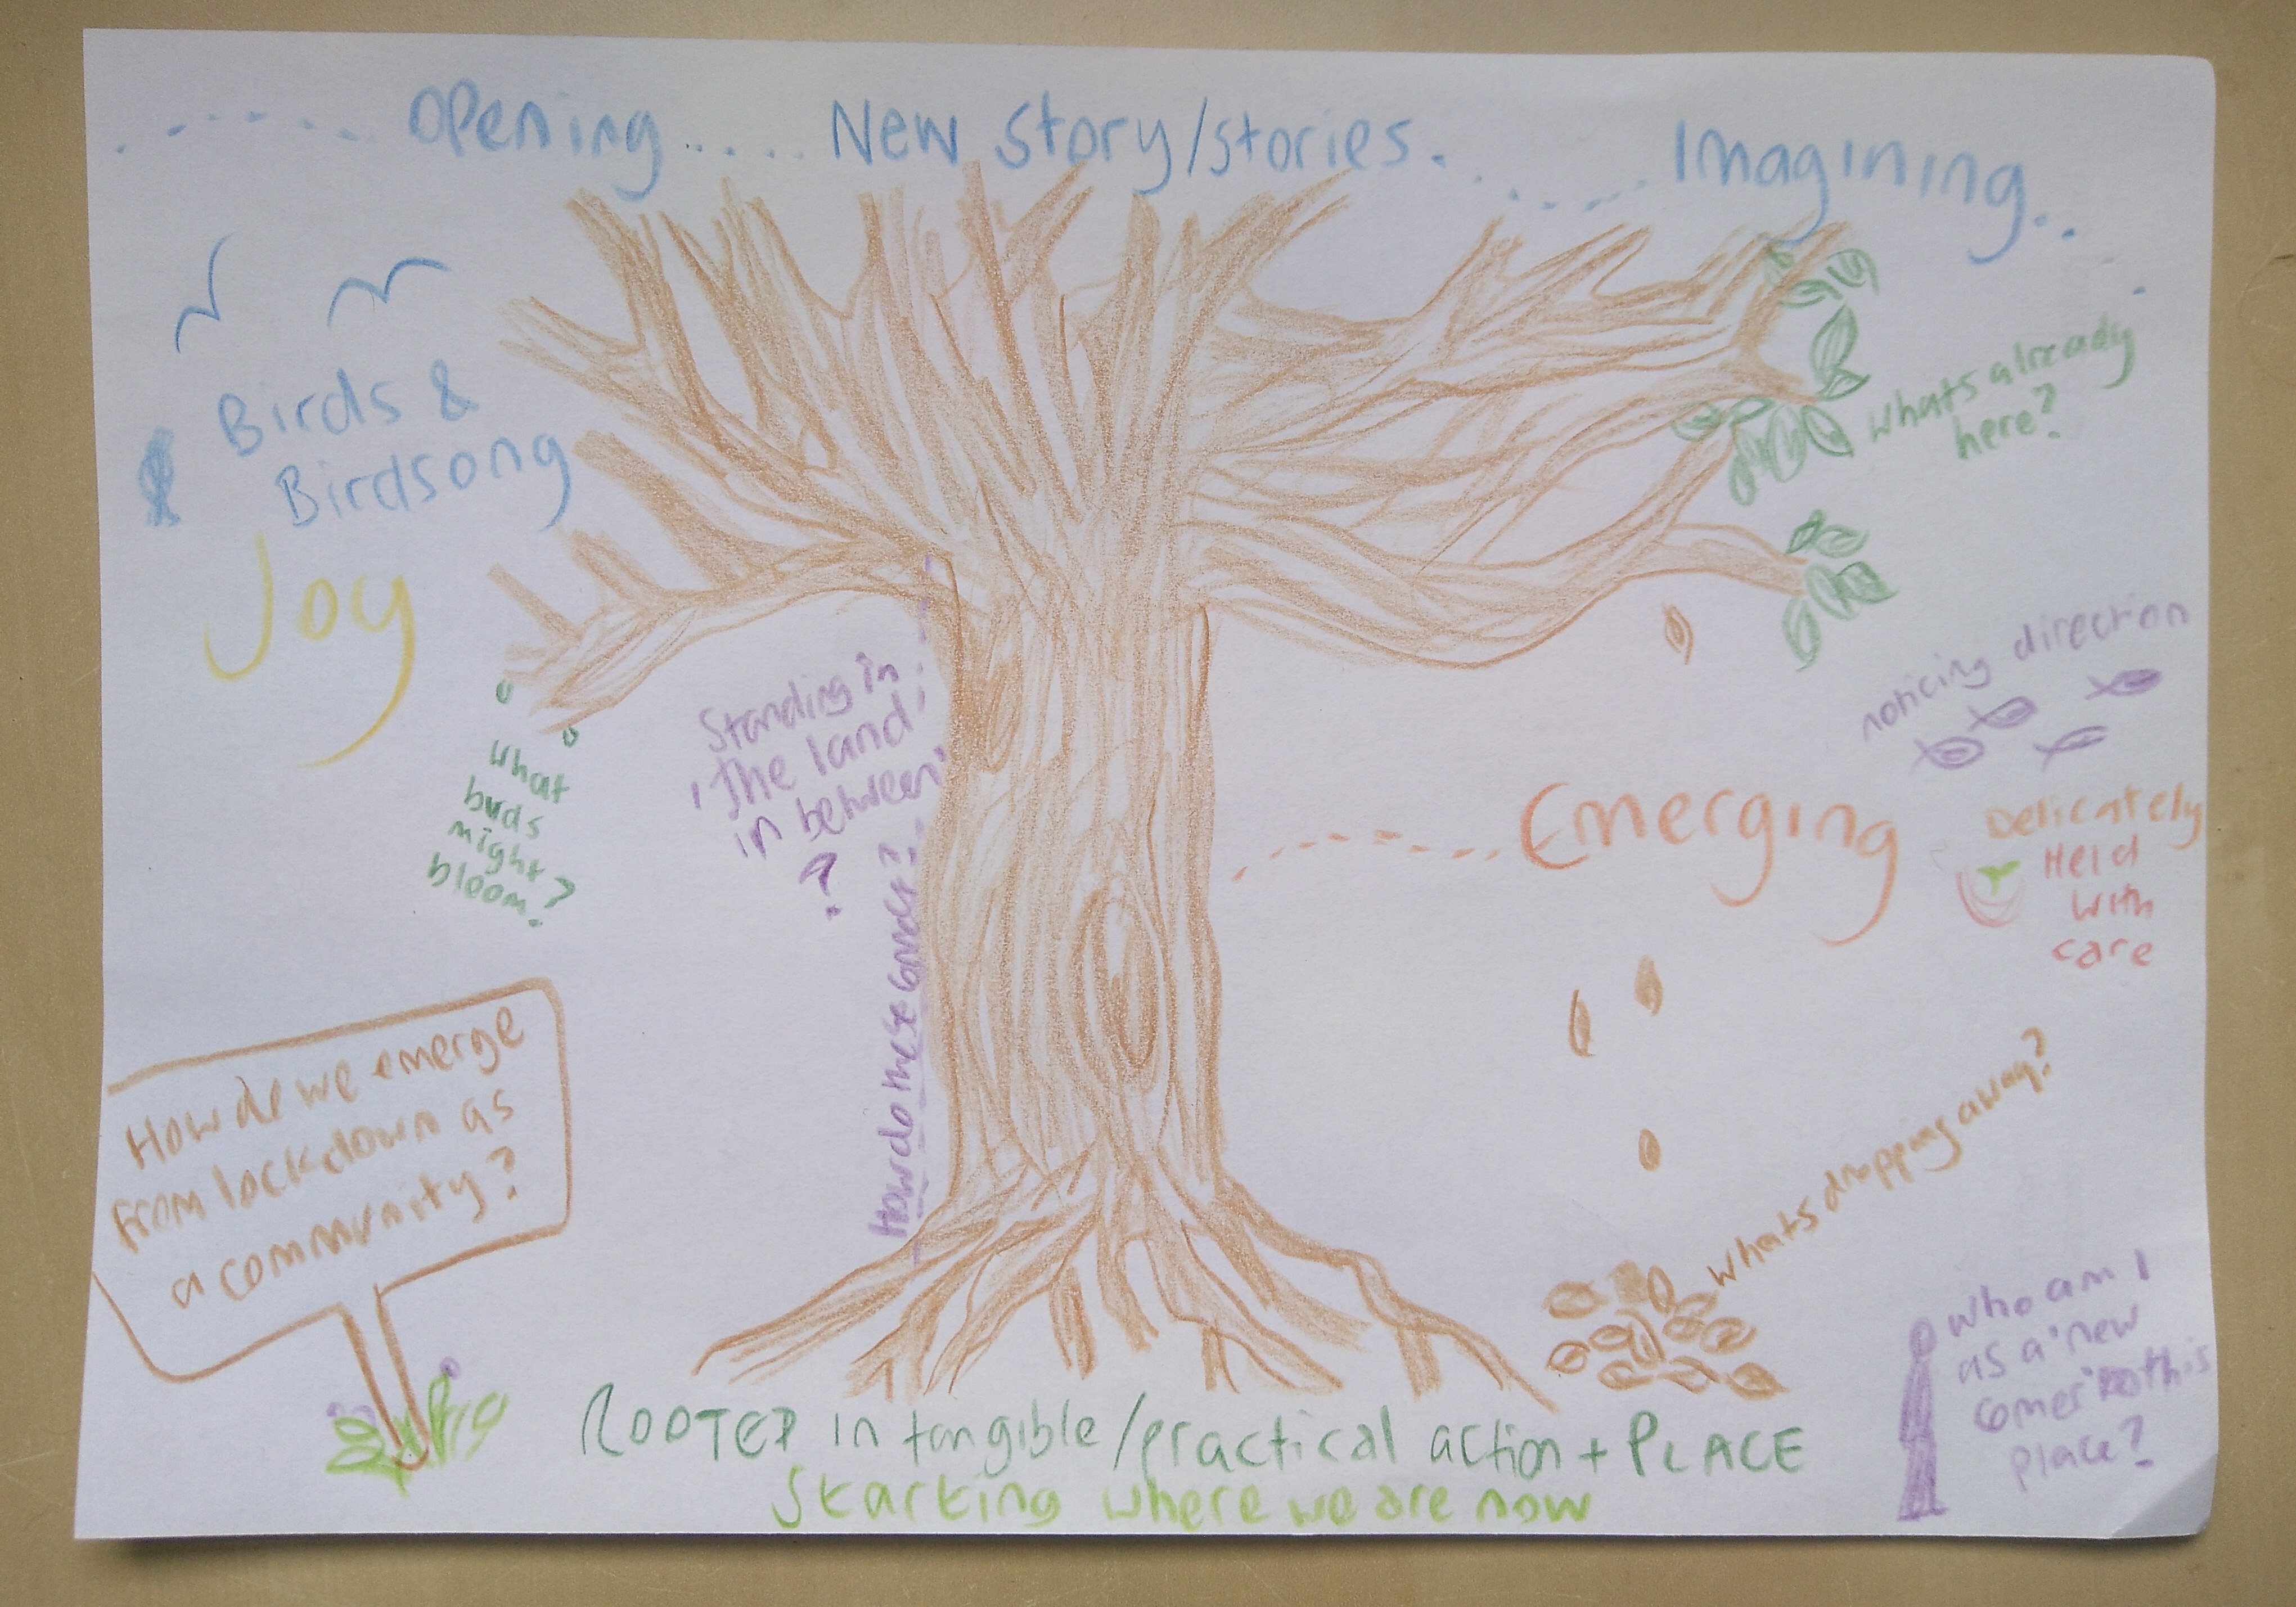 Opening..... New Story/stories. Imagining..
Birds &
Birdsong
Joy
whats already
here?
noticing direction
Standing in
'the land
in between'
?
How do these connect?
what
buds
might?
bloom?
Emerging
Delicately
Held
with
care
How do we emerge
from lockdown as
a community?
whats dropping away?
who am I
as a 'new
comer' to this
place?
ROOTED in tangible/practical action + PLACE
Starting where we are now